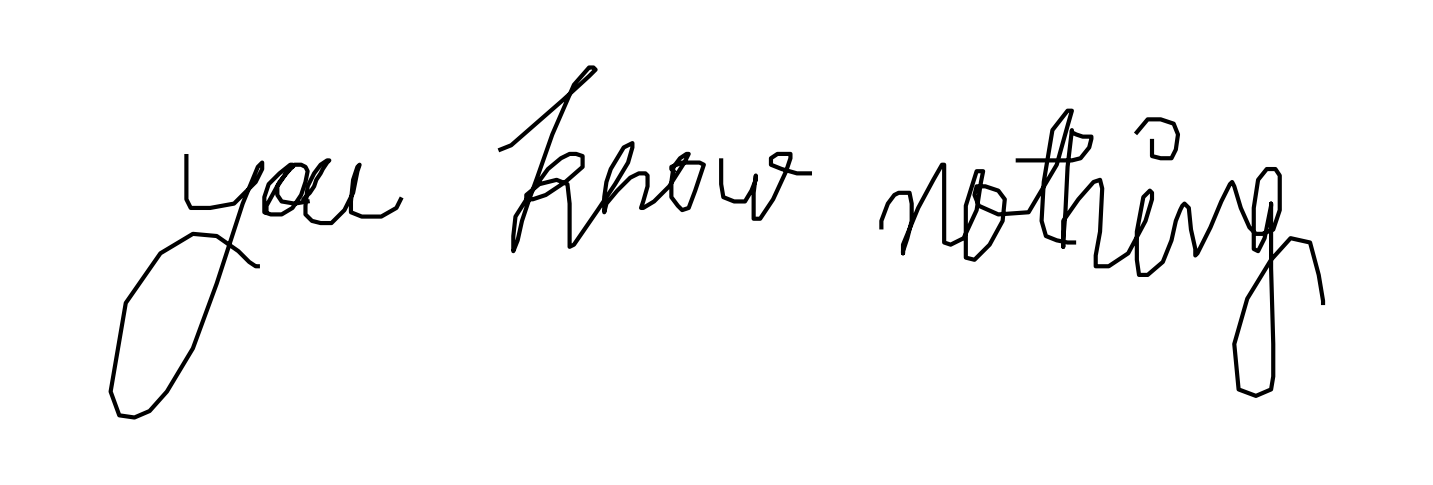 you know nothing